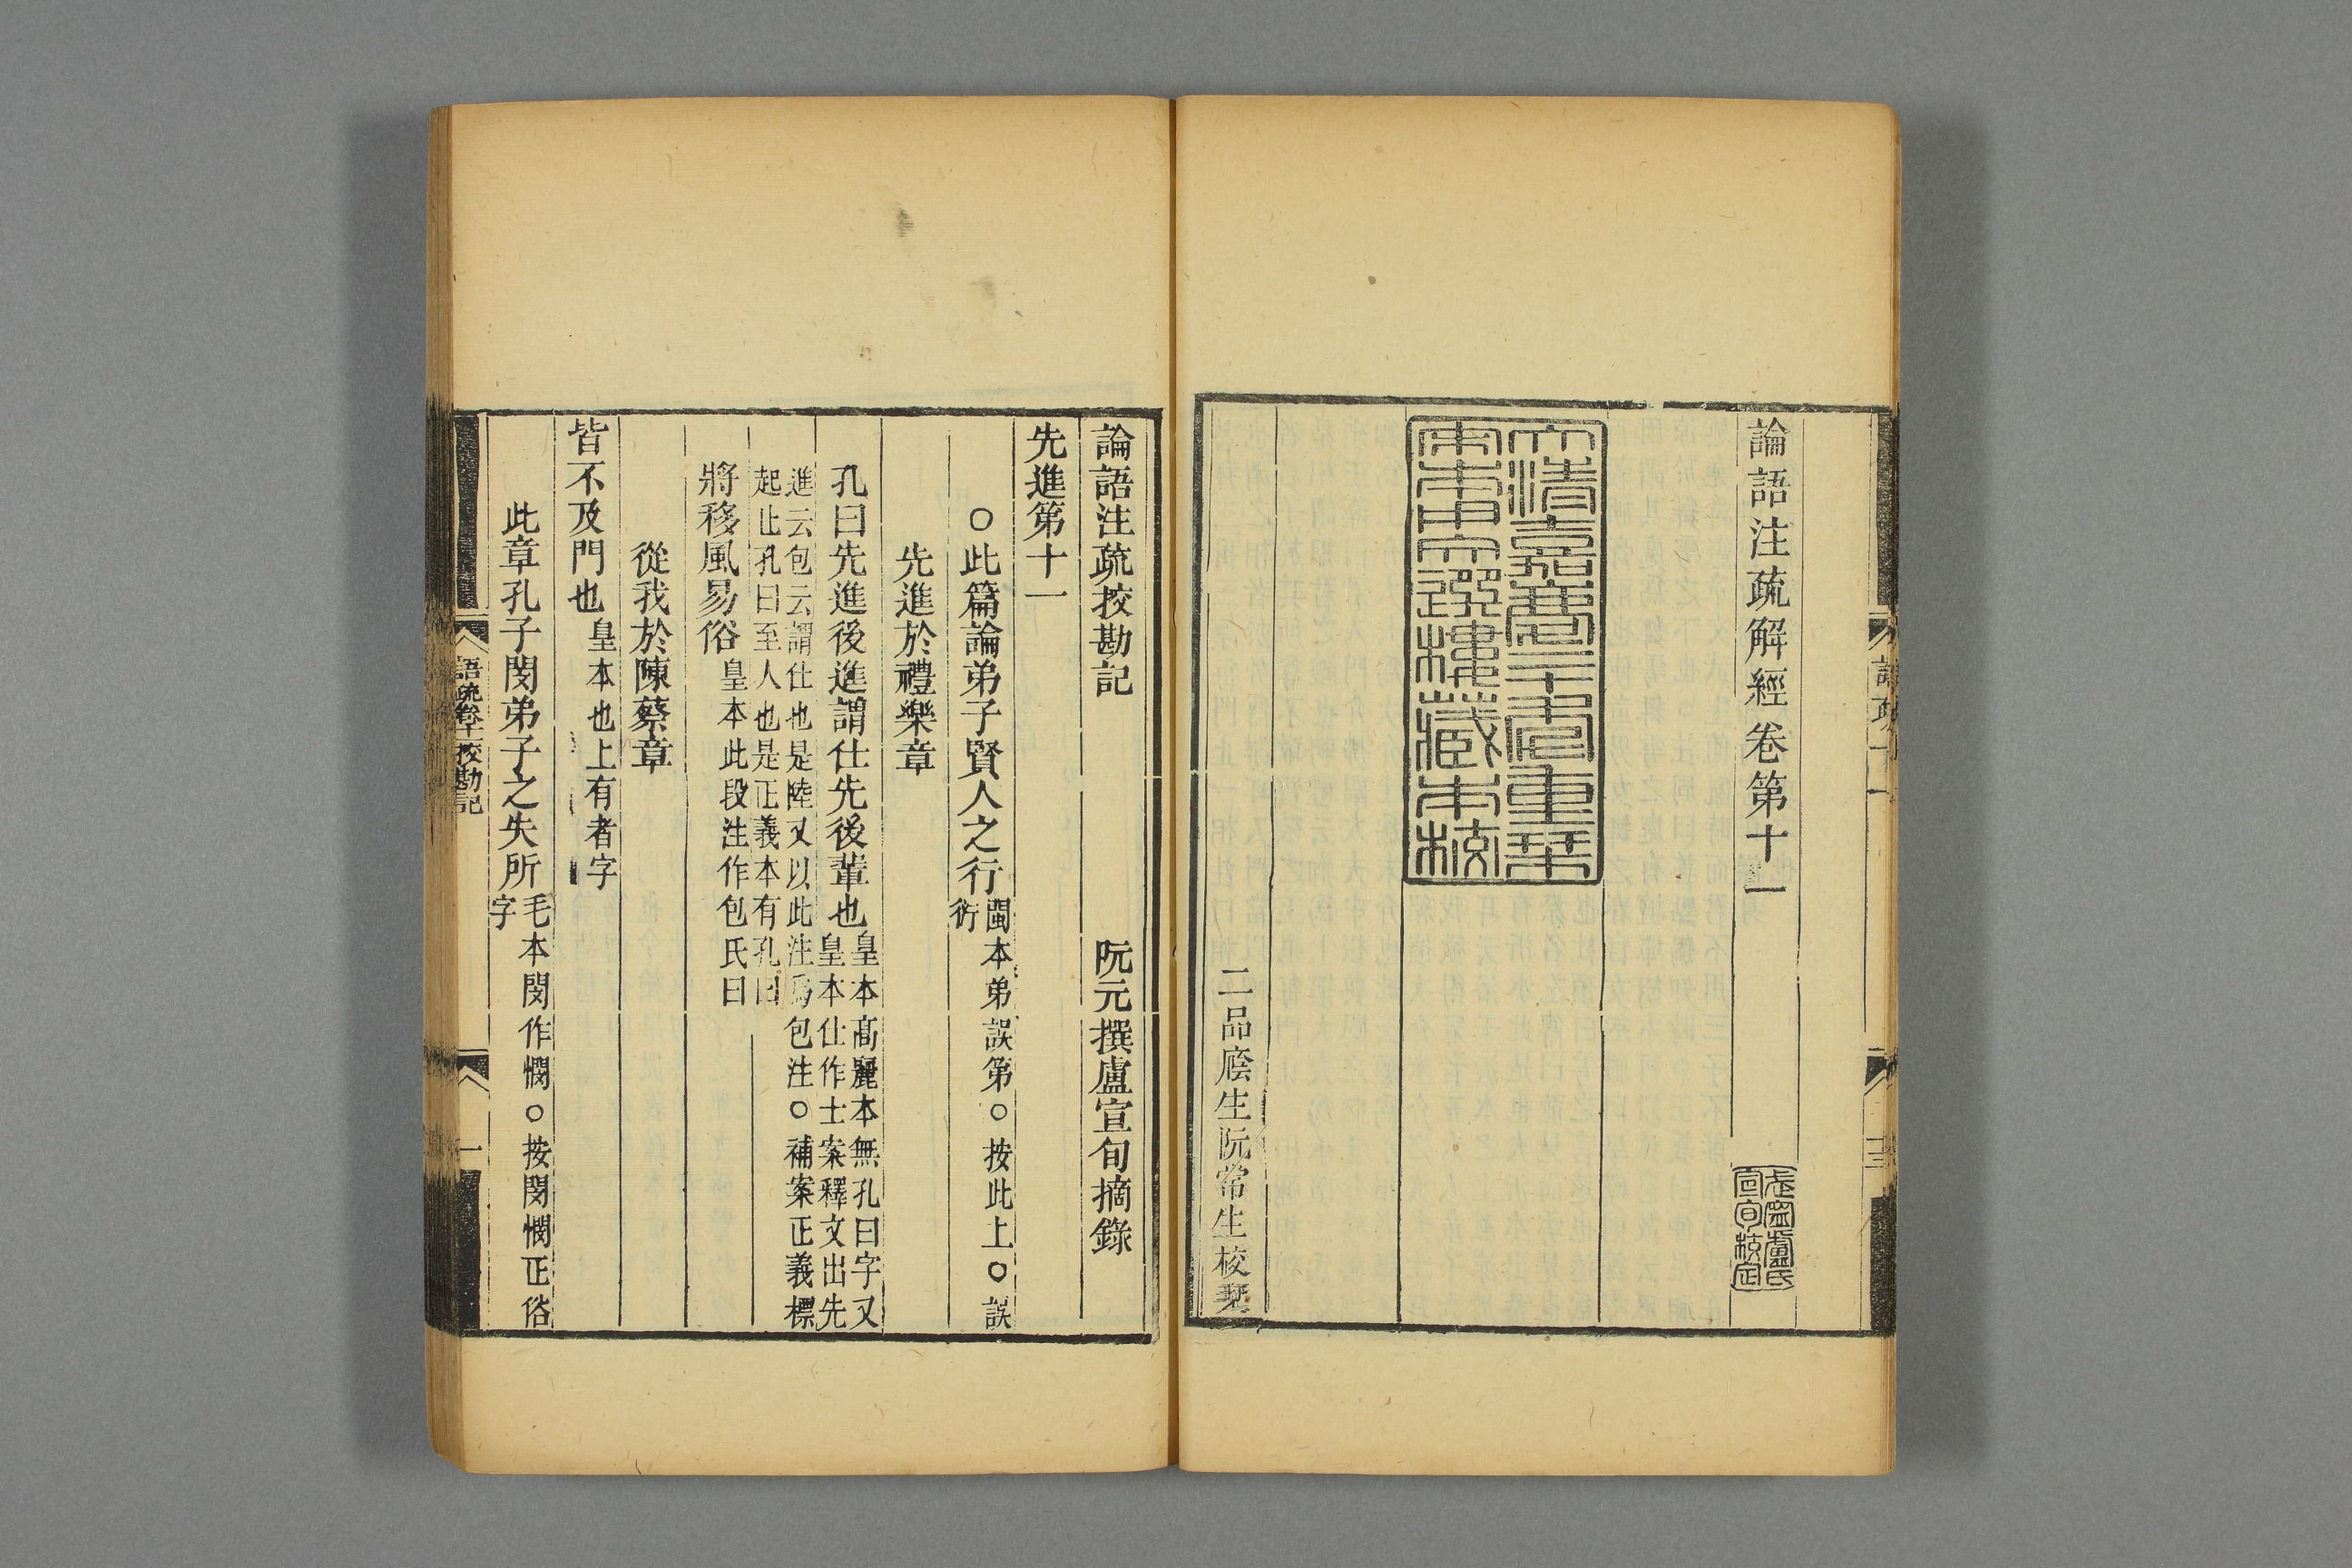 論語注疏解經卷第十一
武寧盧氏宣旬校定
大清嘉慶二十年重栞
宋本文選樓藏本校
二品廕生阮常生校栞
論語注疏挍勘記
阮元撰盧宣旬摘錄
先進第十一
○此篇論弟子賢人之行閩本弟誤第○按此上○誤衍
先進於禮樂章
孔曰先進後進謂仕先後輩也皇本高麗本無孔曰字又皇本仕作士案釋文出先
進云包云謂仕也是陸又以此注爲包注○補案正義標起止孔曰至人也是正義本有孔曰
將移風易俗皇本此段注作包氏曰
從我於陳蔡章
皆不及門也皇本也上有者字
此章孔子閔弟子之失所毛本閔作憫○按閔憫正俗字
語疏卷十一挍勘記
一